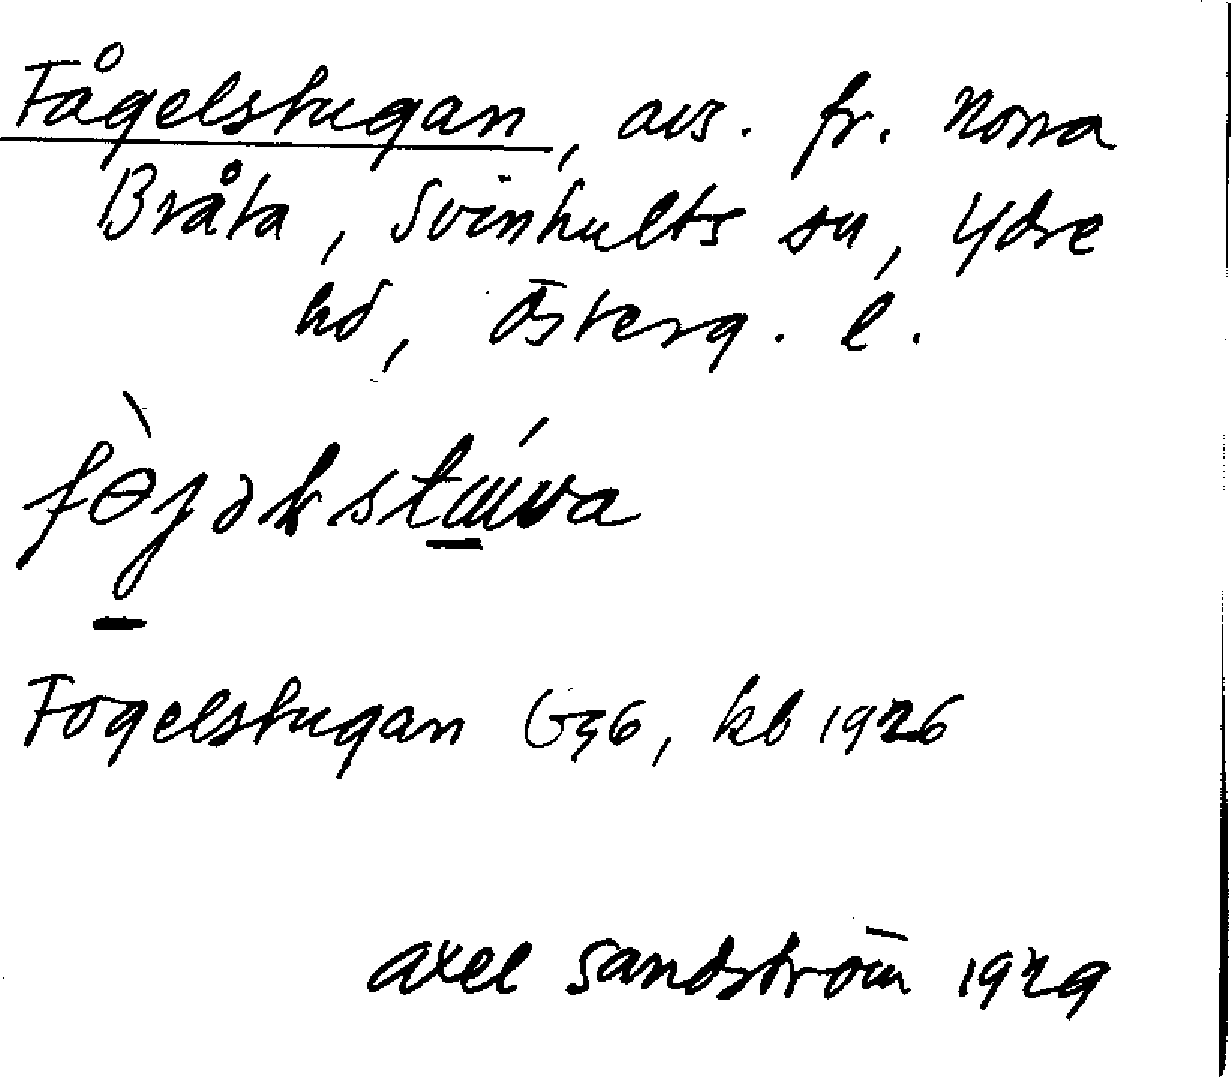 Fågelstugan, avs. fr. Norra
Bråta, Svinhults sn, Ydre
hd, Österg. l.
Fogelstugan kb 1926
Axel Sandström 1929